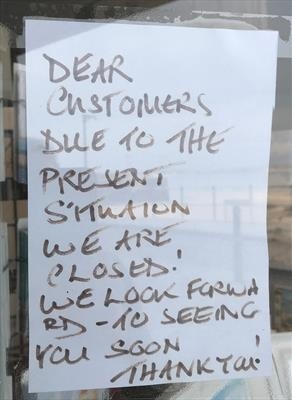 DEAR
CUSTOMERS
DUE TO THE
PRESENT
SITUAION
WE ARE
CLOSED!
WE LOOK FORWA
RD - TO SEEING
YOU SOON
THANK YOU!